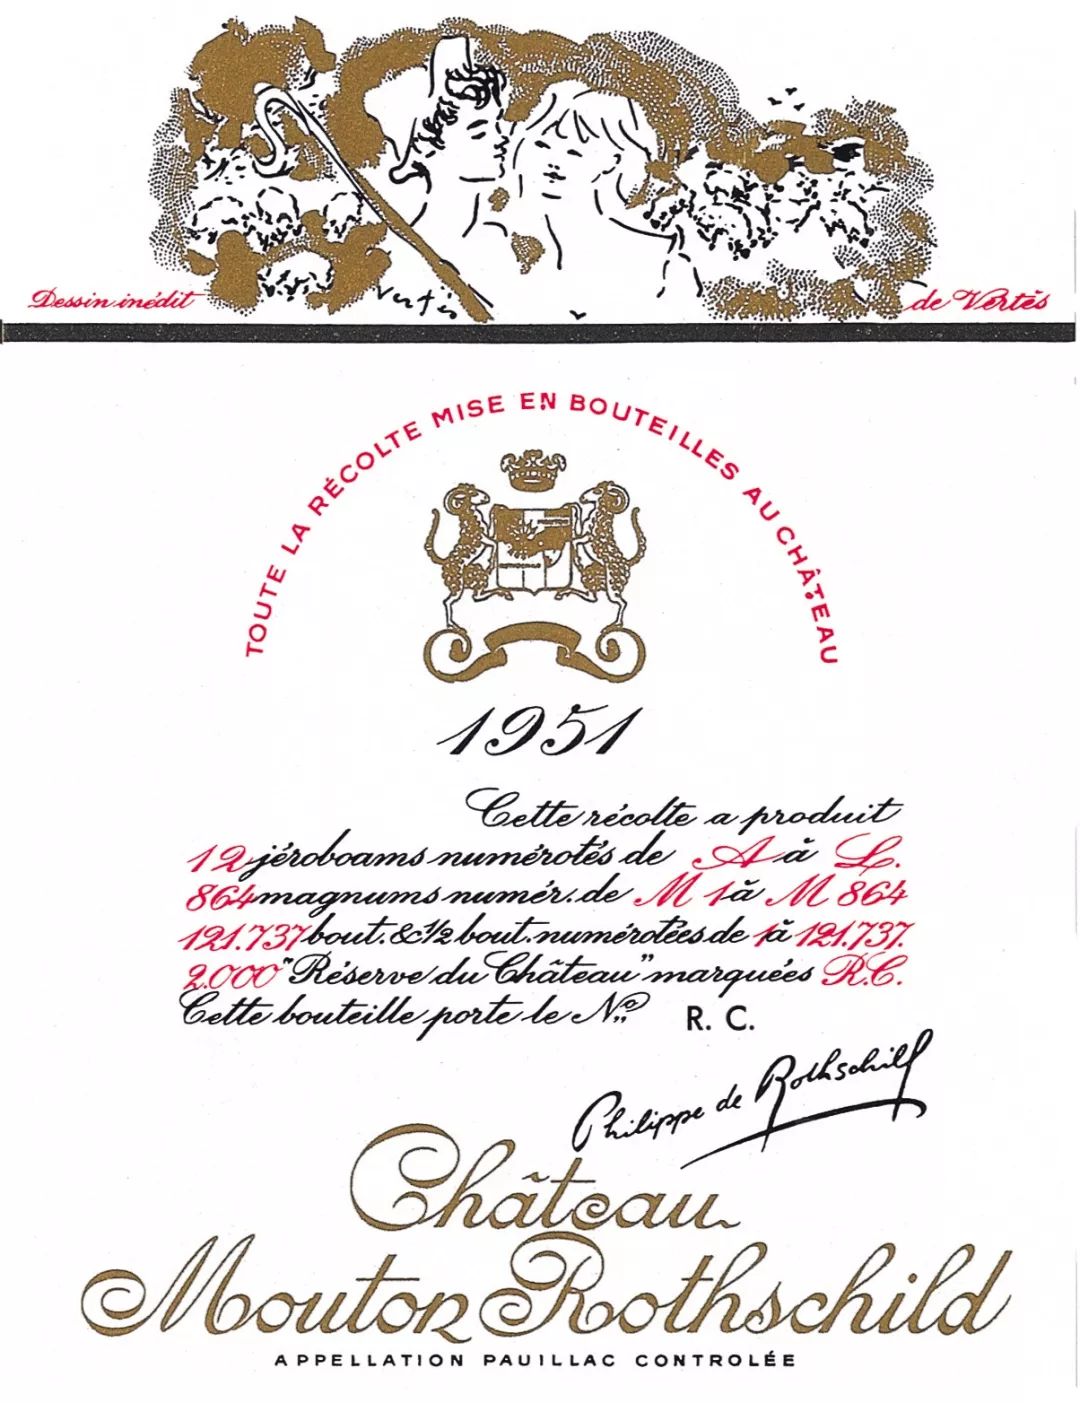 Vertès
Dessin inédit
de Vertès
TOUTE LA RÉCOLTE MISE EN BOUTEILLES AU CHÂTEAU
1951
Cette récolte a produit
12 jéroboams numérotés de A à L.
864 magnums numér. de M 1 à M 864
121.737 bout. & 1/2 bout. numérotées de 1 à 121.737.
2.000 "Réserve du Château" marquées R.C.
Cette bouteille porte le Nº R. C.
Philippe de Rothschild
Château
Mouton Rothschild
APPELLATION PAUILLAC CONTROLÉE